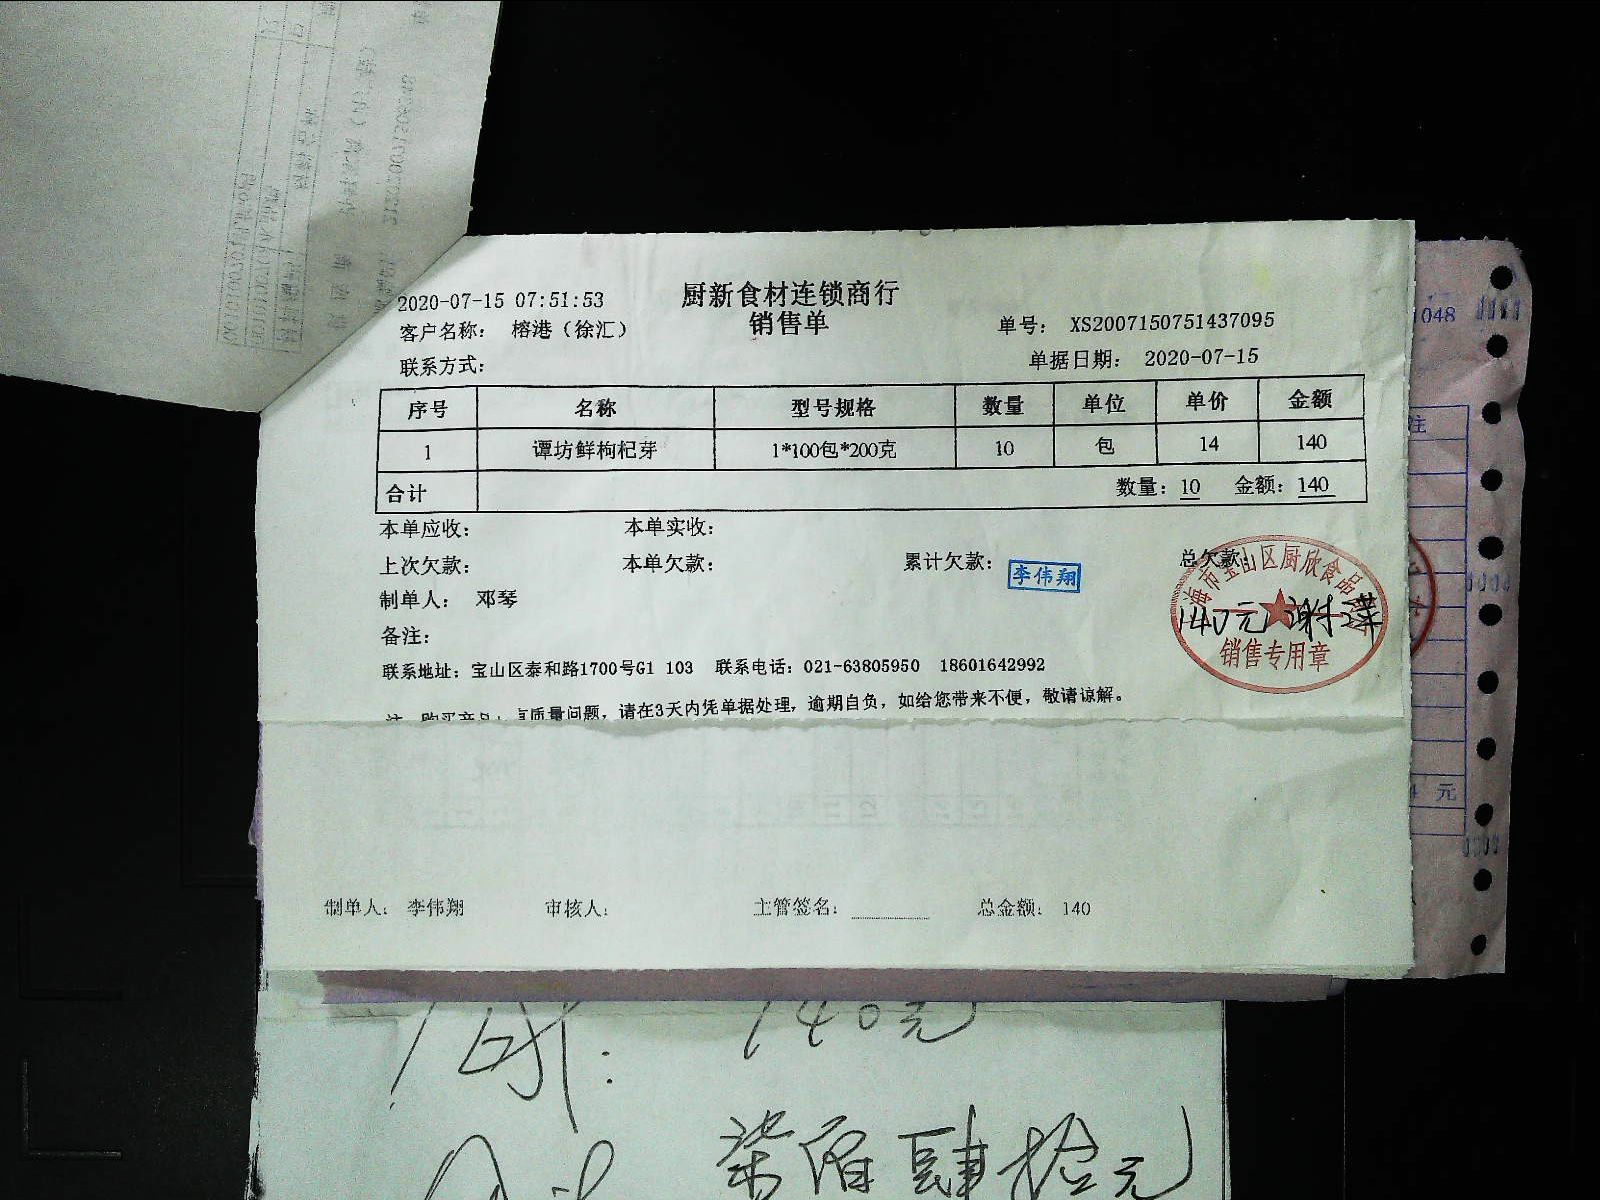 2020-07-15 07:51:53
厨新食材连锁商行
销售单
客户名称： 榕港（徐汇）
单号： XS2007150751437095
联系方式：
单据日期： 2020-07-15
序号 名称 型号规格 数量 单位 单价 金额
1 谭坊鲜枸杞芽 1*100包*200克 10 包 14 140
合计 数量：10 金额：140
本单应收： 本单实收：
上次欠款： 本单欠款： 累计欠款： 总欠款：
李伟翔
制单人： 邓琴
海市宝山区厨欣食品
140元
销售专用章
备注：
联系地址：宝山区泰和路1700号G1 103 联系电话：021-63805950 18601642992
质量问题，请在3天内凭单据处理，逾期自负，如给您带来不便，敬请谅解。
制单人： 李伟翔 审核人： 主管签名： 总金额： 140
1048
注
元
140元
柒佰肆拾元